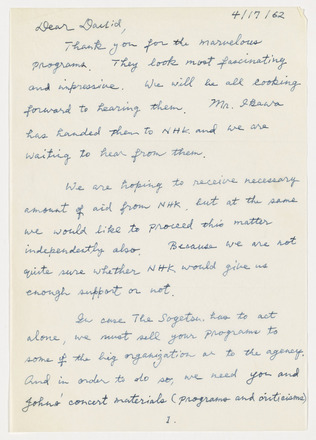 4/17/62
Dear David,
Thank you for the marvelous
programs. They look most fascinating
and impressive. We will be all looking
forward to hearing them. Mr. Ikawa
has handed them to NHK and we are
waiting to hear from them.
We are hoping to receive necessary
amount of aid from NHK, but at the same
we would like to proceed this matter
independently also. Because we are not
quite sure whether NHK would give us
enough support or not.
In case The Sogetsu, has to act
alone, we must sell your programs to
some of the big organization or to the agency.
And in order to do so, we need you and
Johns' concert materials (programs and criticisms)
1.